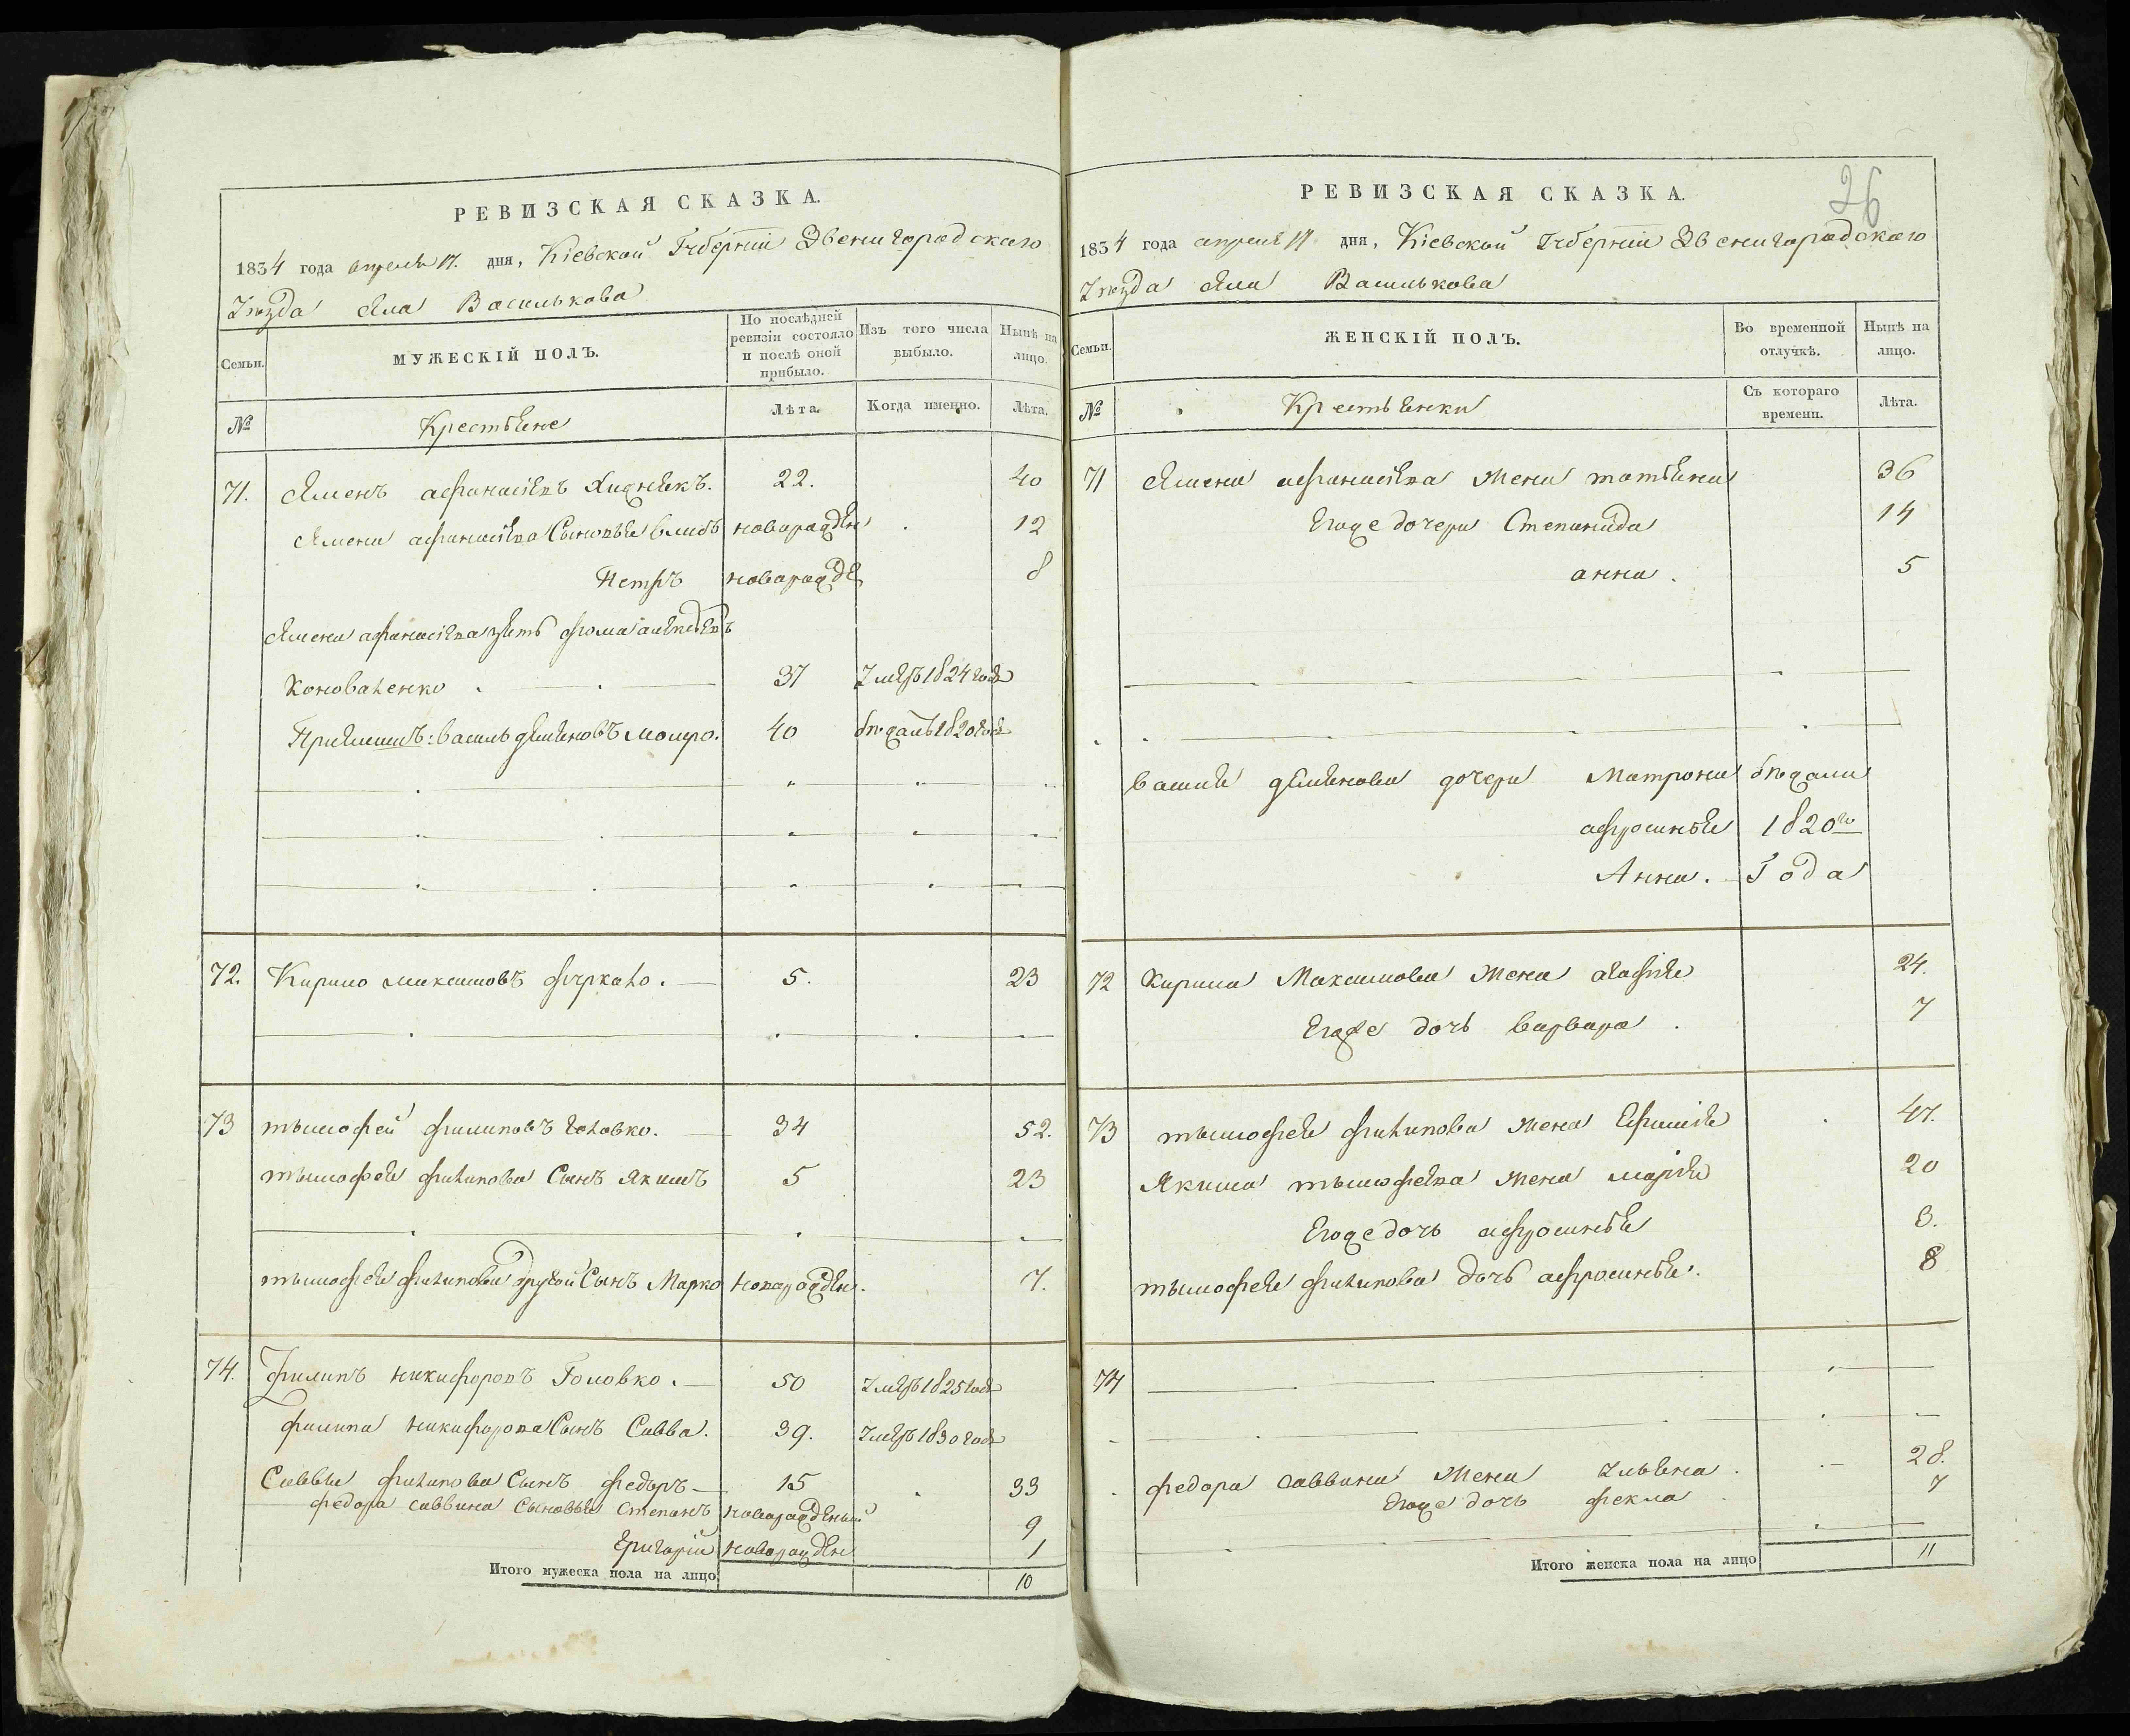 РЕВИЗСКАЯ СКАЗКА.
1834 года апреля 17. дня, Кіевской Губерніи Звенигородскаго
Уезда Села Василькова
Семьи.
МУЖЕСКІЙ ПОЛЪ.
По послѣдней ревизіи состояло и послѣ оной прибыло.
Изъ того числа выбыло.
Нынѣ на лицо.
№
Крестьяне
Лѣта.
Когда именно.
Лѣта.
71. Семенъ афанасіевъ 22. 40
Семена афанасіева Сыновья новарожден 12
Петръ новарожде 8
Семена афанасіева зять фома
Коноваленко 37 Умеръ 1824 года
40 1820 года
72. Кирило максимовъ 5. 23
73 тымофей филиповъ головко. 34 52.
тымофея филипова Сынъ Якимъ 5 23
тымофея филипова другой Сынъ Марко новарожден. 7.
74. Филипъ никифоровъ Головко. 50 Умеръ 1825 года
филипа никифорова Сынъ Савва. 39. Умеръ 1830 года
Саввы филипова Сынъ федоръ 15 33
федора саввина Сыновья степанъ новарожденый 9
григорій новарожден 1
Итого мужеска пола на лицо 10
26
РЕВИЗСКАЯ СКАЗКА.
1834 года апреля 17 дня, Кіевской Губерніи Звенигородскаго
Уезда Села Василькова
Семьи.
ЖЕНСКІЙ ПОЛЪ.
Во временной отлучкѣ.
Нынѣ на лицо.
№
Крестьянки
Съ котораго времени.
Лѣта.
71 Семена афанасіева жена татьяна 36
Егоже дочери Степанида 14
анна. 5
дочери Матрона
афросинья 1820го
Анна. Года
72 Кирила Максимова жена агафія 24.
Егоже дочь варвара. 7
73 тымофея филипова жена Ефимія 47.
Якима тымофеева жена марія 20
Егоже дочь афросинья 3.
тымофея филипова дочь афросинья. 8
74
федора саввина жена 28.
Егоже дочь фекла 7
Итого женска пола на лицо 11